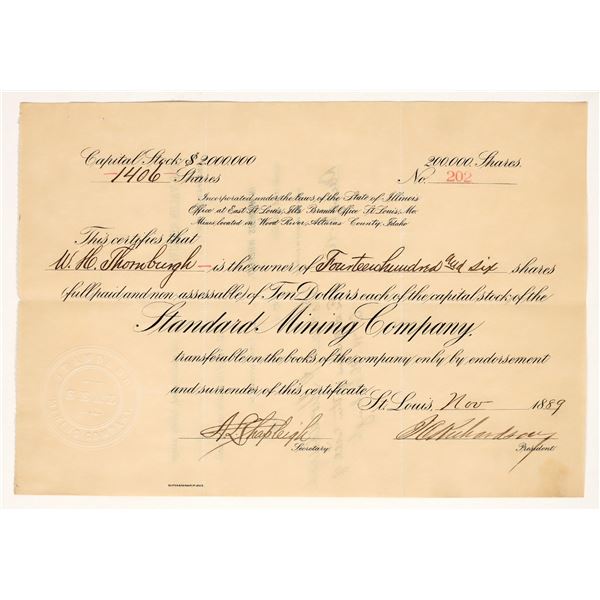 Capital Stock $2,000,000
200,000 Shares.
-1406- Shares
No. 202
Incorporated under the Laws of the State of Illinois
Office at East St. Louis, Ills. Branch Office St. Louis, Mo.
Mines located on Wood River, Alturas County, Idaho
This certifies that
W. H. Thornburgh - is the owner of Fourteen hundred and six shares
(full paid and non-assessable) of Ten Dollars each of the capital stock of the
Standard Mining Company,
transferable on the books of the company only by endorsement
and surrender of this certificate
St. Louis, Nov 1889
A L Shapleigh
Richardson
Secretary
President